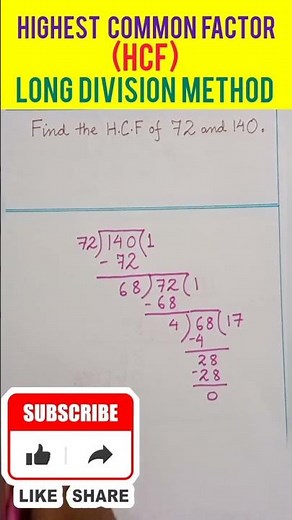 HIGHEST COMMON FACTOR
(HCF)
LONG DIVISION METHOD
Find the H.C.F of 72 and 140.
72)140(1
- 72
68)72(1
- 68
4)68(17
-4
28
-28
0
SUBSCRIBE
LIKE SHARE